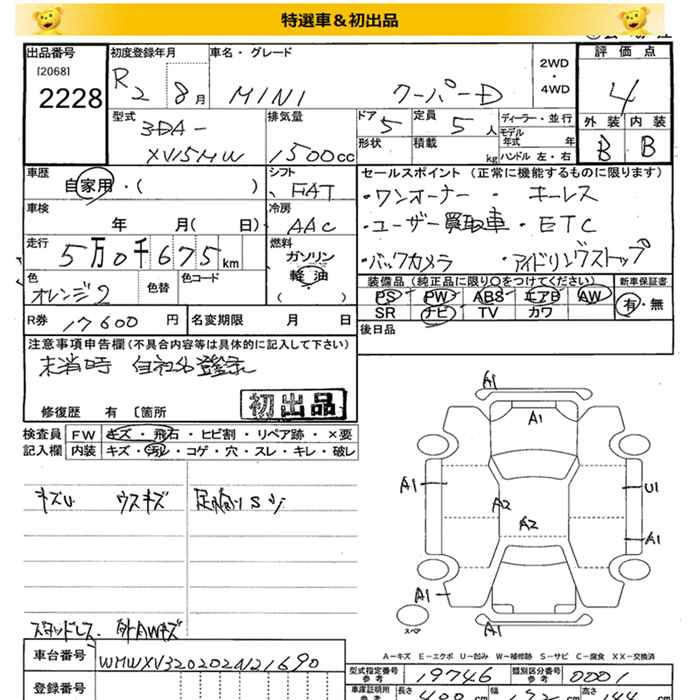 特選車&初出品
出品番号 初度登録年月 車名・グレード 評価点
[2068] 2WD・4WD
2228 R2 8月 MINI クーパーD 4
型式 排気量 ドア 定員 ディーラー・並行 外装 内装
3DA-XV15MW 1500cc 5 5人 モデル年式 年 B B
形状 積載 kg ハンドル 左・右
車歴 シフト セールスポイント (正常に機能するものに限ります)
自家用・( ) FAT ・ワンオーナー ・キーレス
車検 冷房 ・ユーザー買取車 ・ETC
年 月( 日) AAC
走行 燃料 ・バックカメラ ・アイドリングストップ
5万0千675km ガソリン
軽油
( )
色 色替 色コード 装備品 (純正品に限り○をつけてください) 新車保証書
オレンジ2 PS PW ABS エアB AW 有・無
SR ナビ TV カワ
R券 17600円 名変期限 月 日 後日品
注意事項申告欄(不具合内容等は具体的に記入して下さい)
未消時 自社名登録
修復歴 有 〔箇所 初出品
検査員 FW キズ・飛石・ヒビ割・リペア跡・×要
記入欄 内装 キズ・汚れ・コゲ・穴・スレ・キレ・破レ
キズU ウスキズ
スタッドレス.
A1
A1
A1 U1
A2
A2
A1
A1
A1
スペア
A-キズ E-エクボ U-凹み W-補修跡 S-サビ C-腐食 XX-交換済
車台番号 WMWXV320202N21690
型式指定番号 参考 19746 類別区分番号 参考 0001
登録番号
車庫証明用 参考 長さ 幅 高さ